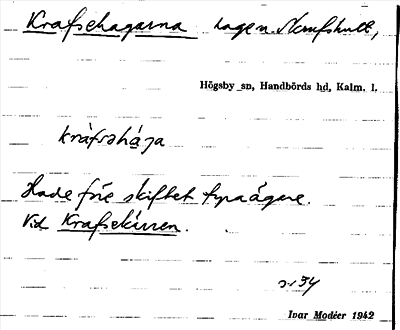 Krafsehagarna hage n. Skrufshult,
Högsby sn, Handbörds hd, Kalm. l.
kràfsəhága
Hade före skiftet fyra ägare.
Vid Krafsekúrren.
34
Ivar Modéer 1942